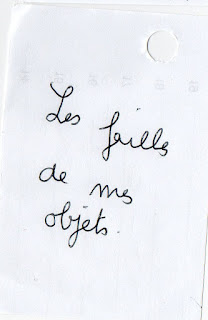 Les failles
de mes
objets.